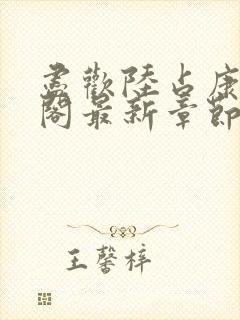 盡歡陸占康
閣最新章節
王馨梓